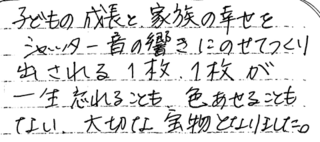 子どもの成長と家族の幸せを
シャッター音の響きにのせてつくり
出される1枚、1枚が
一生忘れることも、色あせることも
ない、大切な宝物となりました。